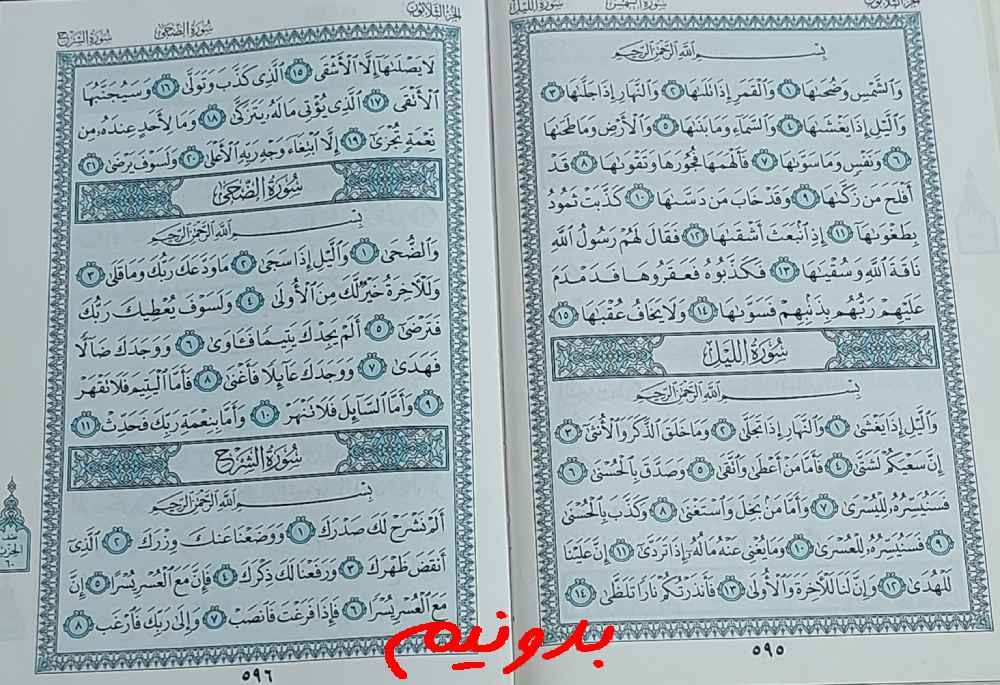 سُورَةُ الشَّمْسِ سُورَةُ اللَّيْلِ
بِسْمِ اللَّهِ الرَّحْمَٰنِ الرَّحِيمِ
وَالشَّمْسِ وَضُحَىٰهَا ١ وَالْقَمَرِ إِذَا تَلَىٰهَا ٢ وَالنَّهَارِ إِذَا جَلَّىٰهَا ٣
وَالَّيْلِ إِذَا يَغْشَىٰهَا ٤ وَالسَّمَاءِ وَمَا بَنَىٰهَا ٥ وَالْأَرْضِ وَمَا طَحَىٰهَا
٦ وَنَفْسٍ وَمَا سَوَّىٰهَا ٧ فَأَلْهَمَهَا فُجُورَهَا وَتَقْوَىٰهَا ٨ قَدْ
أَفْلَحَ مَن زَكَّىٰهَا ٩ وَقَدْ خَابَ مَن دَسَّىٰهَا ١٠ كَذَّبَتْ ثَمُودُ
بِطَغْوَىٰهَا ١١ إِذِ انۢبَعَثَ أَشْقَىٰهَا ١٢ فَقَالَ لَهُمْ رَسُولُ اللَّهِ
نَاقَةَ اللَّهِ وَسُقْيَٰهَا ١٣ فَكَذَّبُوهُ فَعَقَرُوهَا فَدَمْدَمَ
عَلَيْهِمْ رَبُّهُم بِذَنۢبِهِمْ فَسَوَّىٰهَا ١٤ وَلَا يَخَافُ عُقْبَٰهَا ١٥
سُورَةُ اللَّيْلِ
بِسْمِ اللَّهِ الرَّحْمَٰنِ الرَّحِيمِ
وَالَّيْلِ إِذَا يَغْشَىٰ ١ وَالنَّهَارِ إِذَا تَجَلَّىٰ ٢ وَمَا خَلَقَ الذَّكَرَ وَالْأُنثَىٰ ٣
إِنَّ سَعْيَكُمْ لَشَتَّىٰ ٤ فَأَمَّا مَنْ أَعْطَىٰ وَاتَّقَىٰ ٥ وَصَدَّقَ بِالْحُسْنَىٰ ٦
فَسَنُيَسِّرُهُ لِلْيُسْرَىٰ ٧ وَأَمَّا مَنۢ بَخِلَ وَاسْتَغْنَىٰ ٨ وَكَذَّبَ بِالْحُسْنَىٰ
٩ فَسَنُيَسِّرُهُ لِلْعُسْرَىٰ ١٠ وَمَا يُغْنِي عَنْهُ مَالُهُ إِذَا تَرَدَّىٰ ١١ إِنَّ عَلَيْنَا
لَلْهُدَىٰ ١٢ وَإِنَّ لَنَا لَلْآخِرَةَ وَالْأُولَىٰ ١٣ فَأَنذَرْتُكُمْ نَارًا تَلَظَّىٰ ١٤
٥٩٥
الجزء الثلاثون سُورَةُ الضُّحَىٰ سُورَةُ الشَّرْحِ
لَا يَصْلَىٰهَا إِلَّا الْأَشْقَى ١٥ الَّذِي كَذَّبَ وَتَوَلَّىٰ ١٦ وَسَيُجَنَّبُهَا
الْأَتْقَى ١٧ الَّذِي يُؤْتِي مَالَهُ يَتَزَكَّىٰ ١٨ وَمَا لِأَحَدٍ عِندَهُ مِن
نِّعْمَةٍ تُجْزَىٰ ١٩ إِلَّا ابْتِغَاءَ وَجْهِ رَبِّهِ الْأَعْلَىٰ ٢٠ وَلَسَوْفَ يَرْضَىٰ ٢١
سُورَةُ الضُّحَىٰ
بِسْمِ اللَّهِ الرَّحْمَٰنِ الرَّحِيمِ
وَالضُّحَىٰ ١ وَالَّيْلِ إِذَا سَجَىٰ ٢ مَا وَدَّعَكَ رَبُّكَ وَمَا قَلَىٰ ٣
وَلَلْآخِرَةُ خَيْرٌ لَّكَ مِنَ الْأُولَىٰ ٤ وَلَسَوْفَ يُعْطِيكَ رَبُّكَ
فَتَرْضَىٰ ٥ أَلَمْ يَجِدْكَ يَتِيمًا فَآوَىٰ ٦ وَوَجَدَكَ ضَالًّا
فَهَدَىٰ ٧ وَوَجَدَكَ عَائِلًا فَأَغْنَىٰ ٨ فَأَمَّا الْيَتِيمَ فَلَا تَقْهَرْ
٩ وَأَمَّا السَّائِلَ فَلَا تَنْهَرْ ١٠ وَأَمَّا بِنِعْمَةِ رَبِّكَ فَحَدِّثْ ١١
سُورَةُ الشَّرْحِ
بِسْمِ اللَّهِ الرَّحْمَٰنِ الرَّحِيمِ
أَلَمْ نَشْرَحْ لَكَ صَدْرَكَ ١ وَوَضَعْنَا عَنكَ وِزْرَكَ ٢ الَّذِي
أَنقَضَ ظَهْرَكَ ٣ وَرَفَعْنَا لَكَ ذِكْرَكَ ٤ فَإِنَّ مَعَ الْعُسْرِ يُسْرًا ٥ إِنَّ
مَعَ الْعُسْرِ يُسْرًا ٦ فَإِذَا فَرَغْتَ فَانصَبْ ٧ وَإِلَىٰ رَبِّكَ فَارْغَب ٨
نصف
الحزب
٦٠
٥٩٦
بدونيم